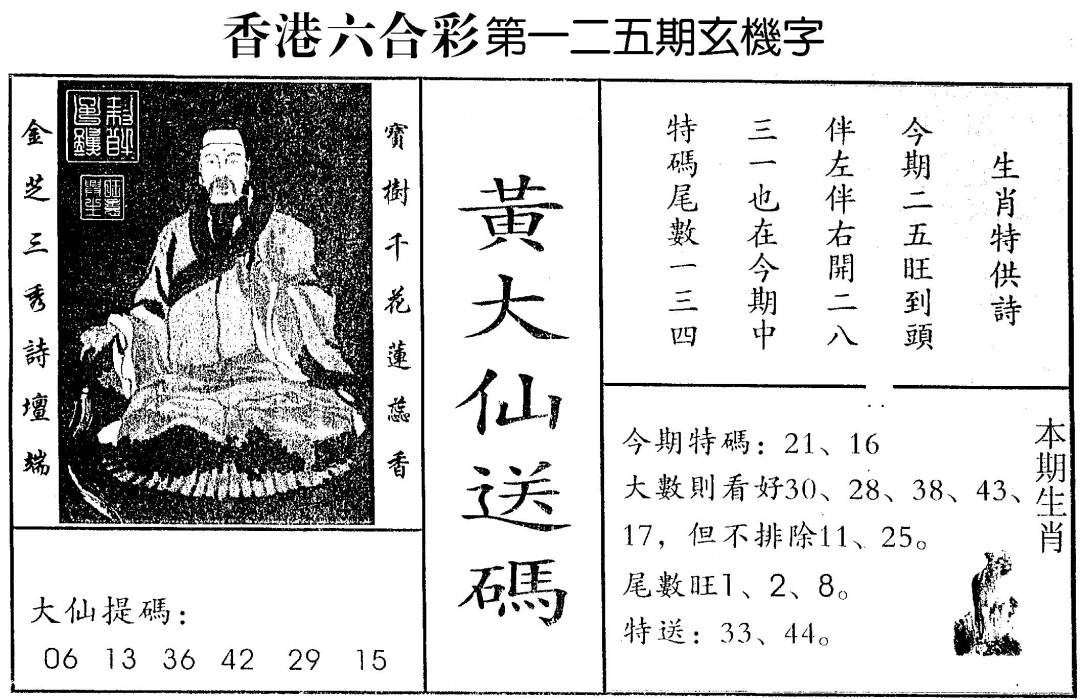 香港六合彩第一二五期玄機字
寶樹千花蓮蕊香
金芝三秀詩壇端
大仙提碼：
06 13 36 42 29 15
黃大仙送碼
生肖特供詩
今期二五旺到頭
伴左伴右開二八
三一也在今期中
特碼尾數一三四
本期生肖
今期特碼：21、16
大數則看好30、28、38、43、
17，但不排除11、25。
尾數旺1、2、8。
特送：33、44。